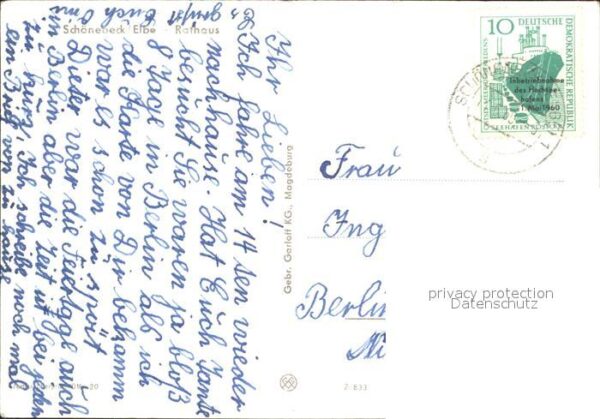 Schönebeck Elbe - Rathaus
Ihr Lieben!
Ich fahre am 14 ten wieder
nach hause. Hat Euch Tante
besucht Sie waren ja bloß
8 Tage in Berlin als ich
die Karte von Dir bekamm
war es schon zu spät
Dieter war die Feiertage auch
in Berlin aber die Zeit ist bei jeden
zu kurz, Ich schreibe noch mal
ein Brief von zu hause
Es grüßt Euch Omi
Gebr. Garloff KG., Magdeburg
Frau
Ing
Berlin
Z 833
10 DEUTSCHE
DEMOKRATISCHE REPUBLIK
Inbetriebnahme
des Hochsee-
hafens
1. Mai 1960
SEEHAFEN ROSTOCK
privacy protection
Datenschutz